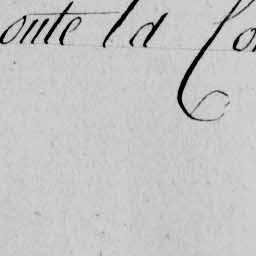 oute la Co